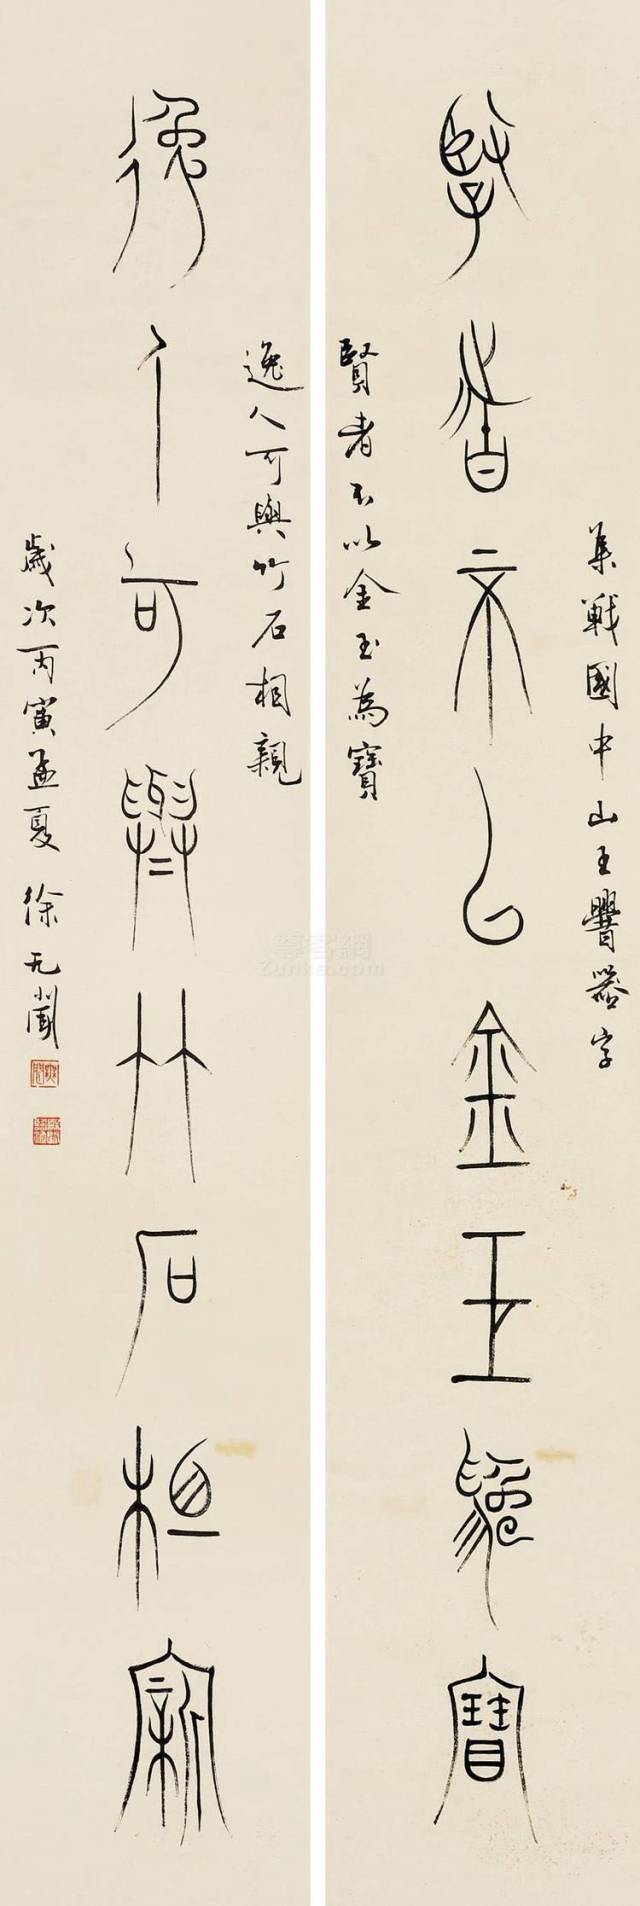 賢者不以金玉為寶
集戰國中山王䰜器字
賢者不以金玉為寶
逸人可與竹石相親
逸人可與竹石相親
歲次丙寅孟夏 徐无聞
尊客網
Zunke.com